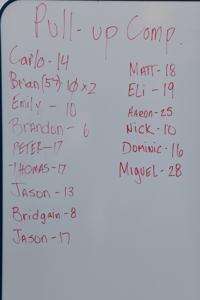 Pull-up Comp.
Carlo - 14
Brian (57) 10 x 2
Emily - 10
Brandon - 6
PETER - 17
THOMAS - 17
Jason - 13
Bridgain - 8
Jason - 17
MATT - 18
ELi - 19
AARON - 25
NICK - 10
DOMINIC - 16
MIGUEL - 28